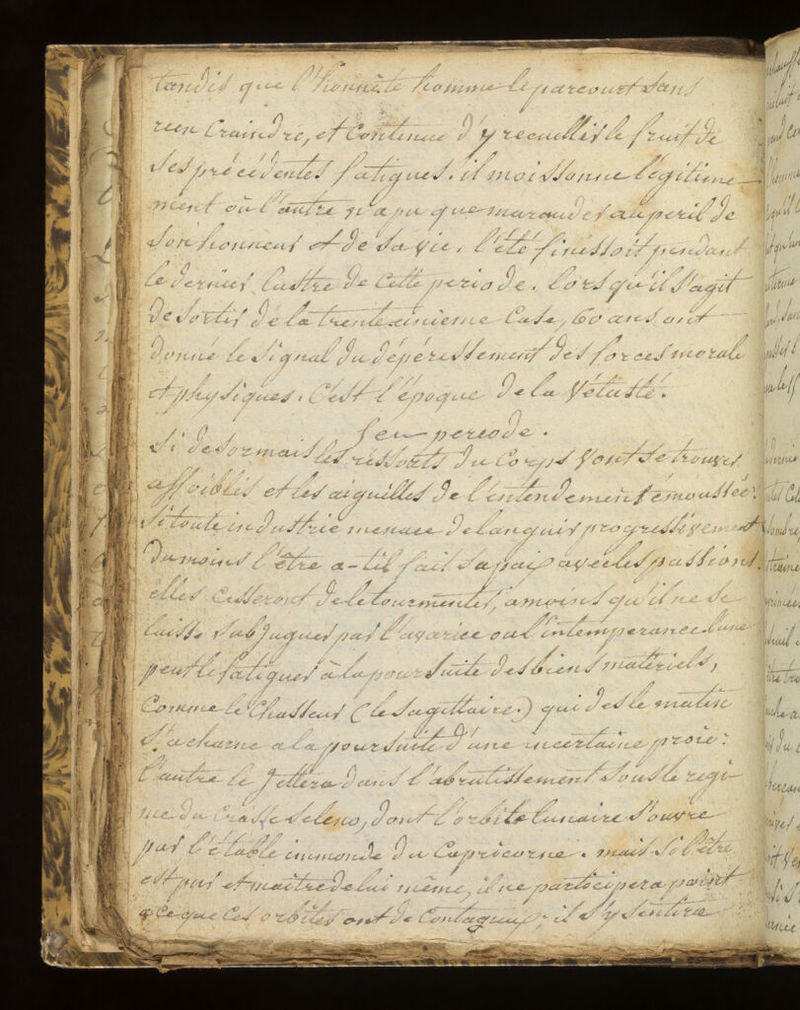 tandis que l'honnête homme le parcourt sans
rien craindre, et continue d'y recueillir le fruit de
ses précédentes fatigues. il moissonne légitime-
ment où l'autre n'a pu que marauder au peril de
son honneur et de sa vie. l'été finissoit pendant
le dernier lustre de cette periode. lorsqu'il s'agit
de sortir de la trentecinieme case, 60 ans ont
donné le signal du dépérissement des forces morale
et physiques. C'est l'époque de la Vétusté.
feu periode.
Si desormais les ressorts du corps vont se trouver
affoiblis et les aiguilles de l'entendement émoussées:
si toute industrie menace de languir progressivement
du moins l'être a-til fait sa paix avec les passions.
elles cesseront de le tourmenter, amoins qu'il ne se
laisse subjuguer par l'avarice ou l'intemperance. l'une
peut le fatiguer à la poursuite des biens matériels,
comme le Chasseur (le Sagittaire) qui dès le matin
s'acharne a la poursuite d'une incertaine proie:
l'autre le jettera dans l'abrutissement sous le regi-
me du crasse Seleno, dont l'orbite lunaire s'ouvre
par l'étable immonde du Capricorne. mais si l'être
est pur et maitre de lui même, il ne participera point
a ce que ces orbites ont de contagieux; il s'y sentira